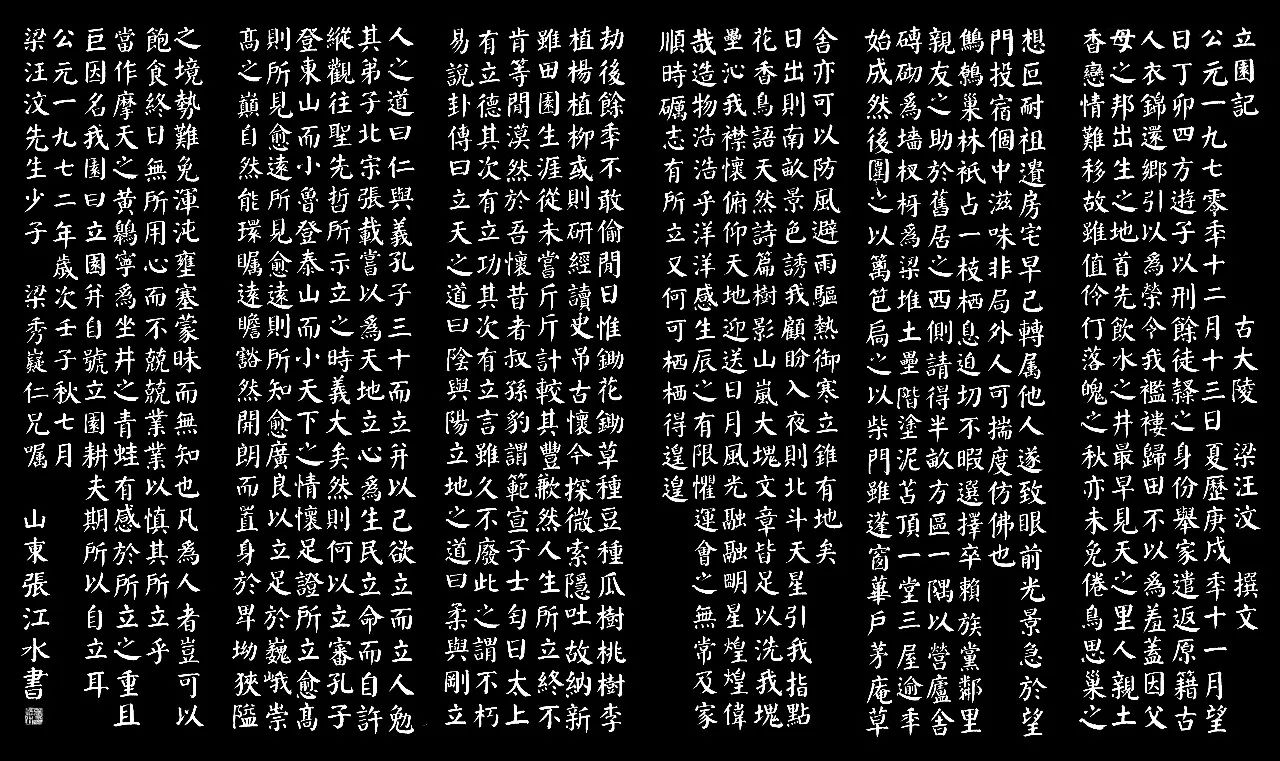 立園記 古大陵 梁汪汶 撰文
公元一九七零秊十二月十三日夏歷庚戌秊十一月望
日丁卯四方遊子以刑餘徒釋之身份舉家遣返原籍古
人衣錦還鄉引以爲榮今我襤褸歸田不以爲羞蓋因父
母之邦出生之地首先飲水之井最早見天之里人親土
香戀情難移故雖值伶仃落魄之秋亦未免倦鳥思巢之
想叵耐祖遺房宅早已轉属他人遂致眼前光景急於望
門投宿個中滋味非局外人可揣度仿佛也
鷦鷯巢林衹占一枝栖息迫切不暇選擇卒賴族黨鄰里
親友之助於舊居之西側請得半畝方區一隅以營廬舍
磚砌爲墻杈枒爲梁堆土壘階塗泥苫頂一堂三屋逾秊
始成然後圍之以篱笆扃之以柴門雖蓬窗蓽戶茅庵草
舍亦可以防風避雨驅熱御寒立錐有地矣
日出則南畝景色誘我顧盼入夜則北斗天星引我指點
花香鳥語天然詩篇樹影山嵐大塊文章皆足以洗我塊
壘沁我襟懷俯仰天地迎送日月風光融融明星煌煌偉
哉造物浩浩乎洋洋感生辰之有限懼運會之無常及家
順時礪志有所立又何可栖栖得遑遑
劫後餘秊不敢偷閒日惟鋤花鋤草種豆種瓜樹桃樹李
植楊植柳或則研經讀史吊古懷今探微索隱吐故納新
雖田園生涯從未嘗斤斤計較其豐歉然人生所立終不
肯等閒漠然於吾懷昔者叔孫豹謂範宣子士匄曰太上
有立德其次有立功其次有立言雖久不廢此之謂不朽
易說卦傳曰立天之道曰陰與陽立地之道曰柔與剛立
人之道曰仁與義孔子三十而立幷以己欲立而立人勉
其弟子北宗張載嘗以爲天地立心爲生民立命而自許
縱觀往聖先哲所示立之時義大矣然則何以立審孔子
登東山而小魯登泰山而小天下之情懷足證所立愈髙
則所見愈遠所見愈遠則所知愈廣良以立足於巍峨崇
髙之巔自然能環矚遠瞻豁然開朗而置身於卑坳狹隘
之境勢難免渾沌壅塞蒙昧而無知也凡爲人者豈可以
飽食終日無所用心而不兢兢業業以慎其所立乎
當作摩天之黃鶴寧爲坐井之青蛙有感於所立之重且
巨因名我園曰立園幷自號立園耕夫期所以自立耳
公元一九七二年歲次壬子秋七月
梁汪汶先生少子 梁秀嶷仁兄嘱 山東張江水書